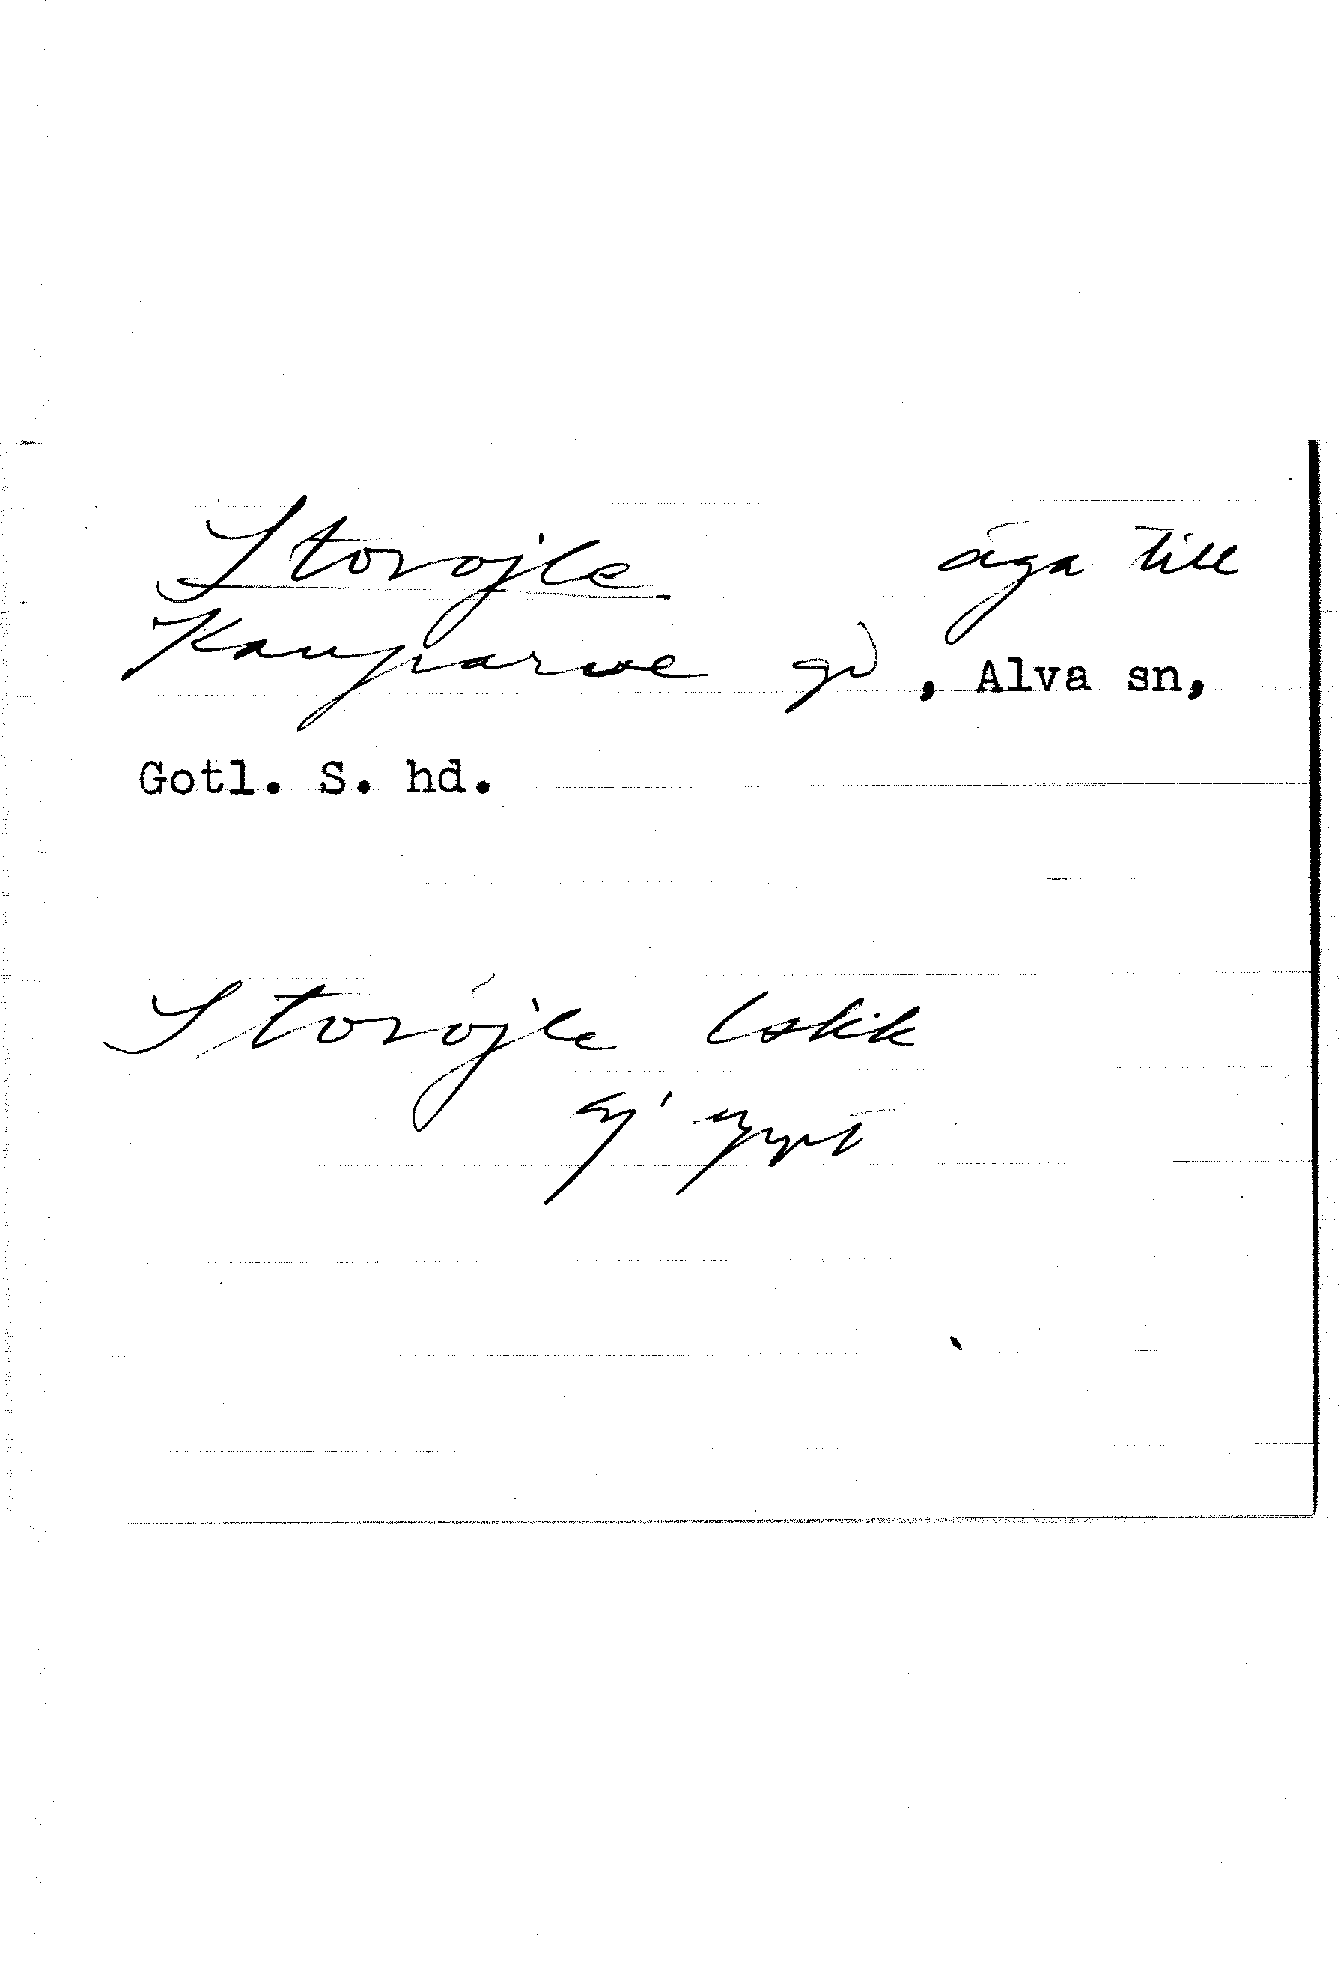 Storojle äga till
Kauparve gd, Alva sn,
Gotl. S. hd.
Storöjle Lskk
ej uppt